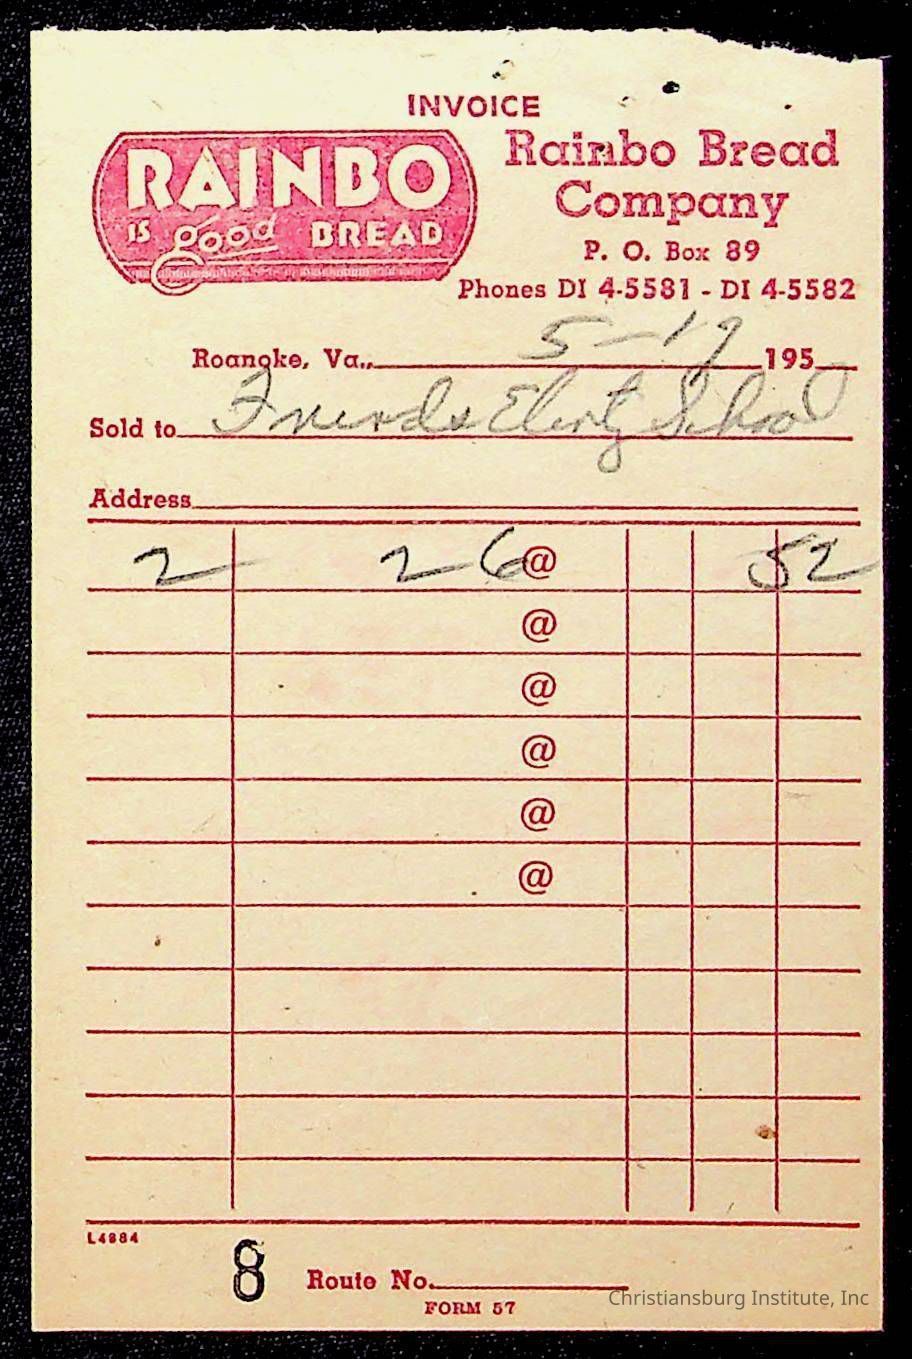 INVOICE
RAINBO
IS good BREAD
Rainbo Bread
Company
P. O. Box 89
Phones DI 4-5581 - DI 4-5582
Roanoke, Va., 5-19 195
Sold to Friends Elemty School
Address
2 26 @ 52
@
@
@
@
@
L4884
8 Route No.
FORM 57
Christiansburg Institute, Inc